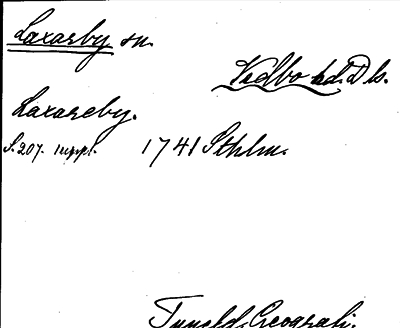 Laxarby sn.
Vedbo hd. Dls.
Laxareby.
S. 207. suppl. 1741 Sthlm.
Tuneld, Geografi.